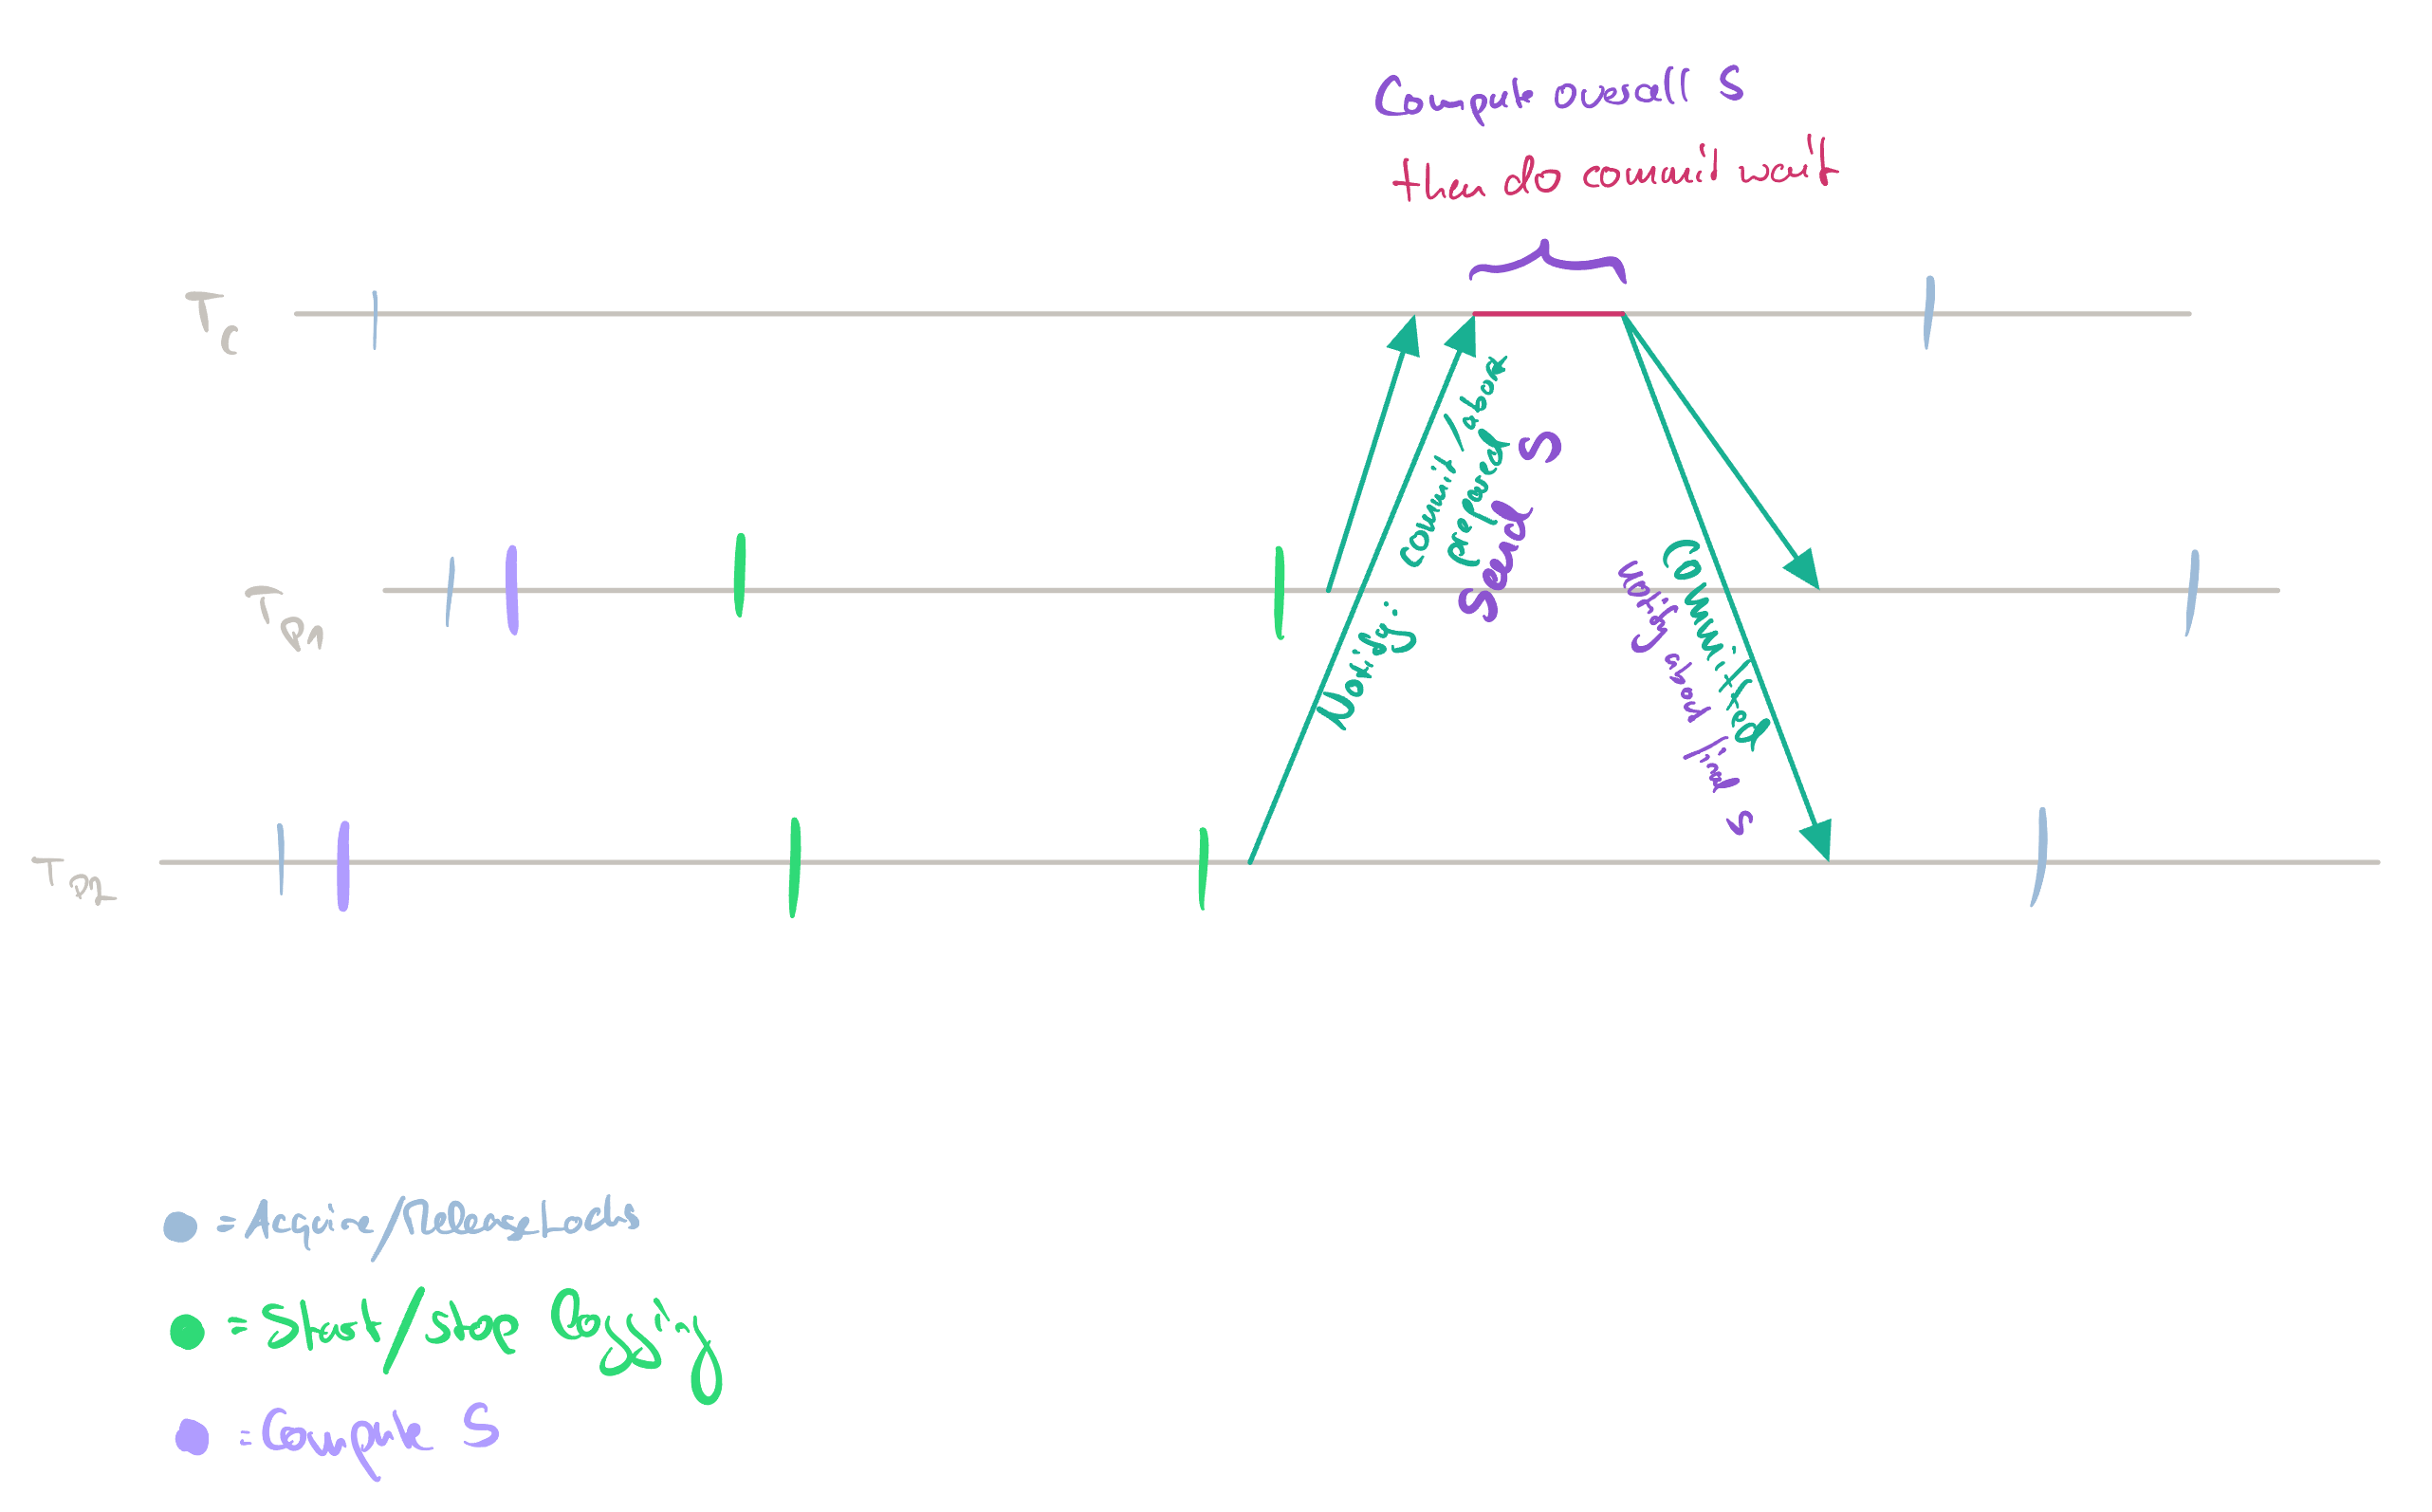 Compute overall S
then do commit wait
Tc
TP1
TP2
Notify: commit / abort
prepared
Sends S
Committed
Using overall final s
= Aquire/Release Locks
= Start/stop Logging
= Compute S